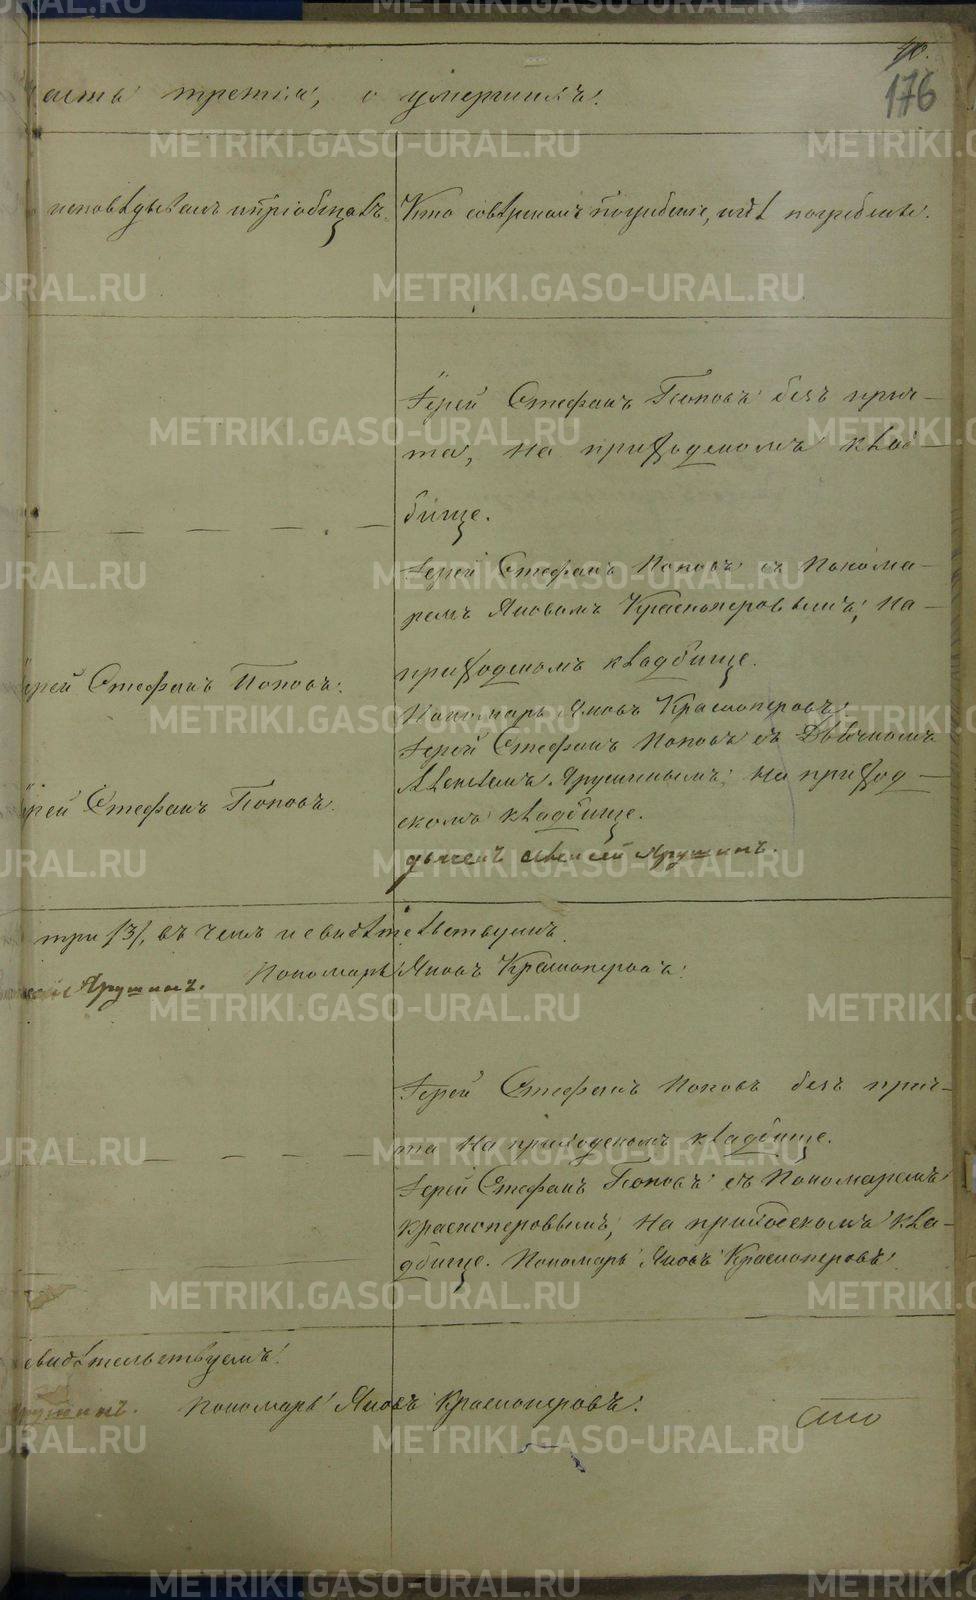 176
асть третія, о умершихъ.
исповѣдывалъ и пріобщалъ.
Кто совершалъ погребеніе, и гдѣ погребены.
Іерей Стефанъ Поповъ безъ прич-
та, на приходскомъ клад-
бище.
Іерей Стефанъ Поповъ съ Понома-
ремъ Яковомъ Красноперовымъ, на
приходскомъ кладбище.
ерей Стефанъ Поповъ.
Пономарь Яковъ Красноперовъ
Іерей Стефанъ Поповъ съ Дьячкомъ
Алексѣемъ Ярушинымъ на приход-
рей Стефанъ Поповъ.
скомъ кладбище.
дьячекъ Алексей Ярушинъ.
три /3/, въ чемъ и свидѣтельствуемъ
Пономарь Яковъ Красноперовъ.
Ярушинъ.
Іерей Стефанъ Поповъ безъ прич-
та на приходскомъ кладбище.
Іерей Стефанъ Поповъ съ Пономаремъ
Красноперовымъ, на приходскомъ кла-
дбище. Пономарь Яковъ Красноперовъ
свидѣтельствуемъ.
рушинъ. Пономарь Яковъ Красноперовъ.
METRIKI.GASO-URAL.RU